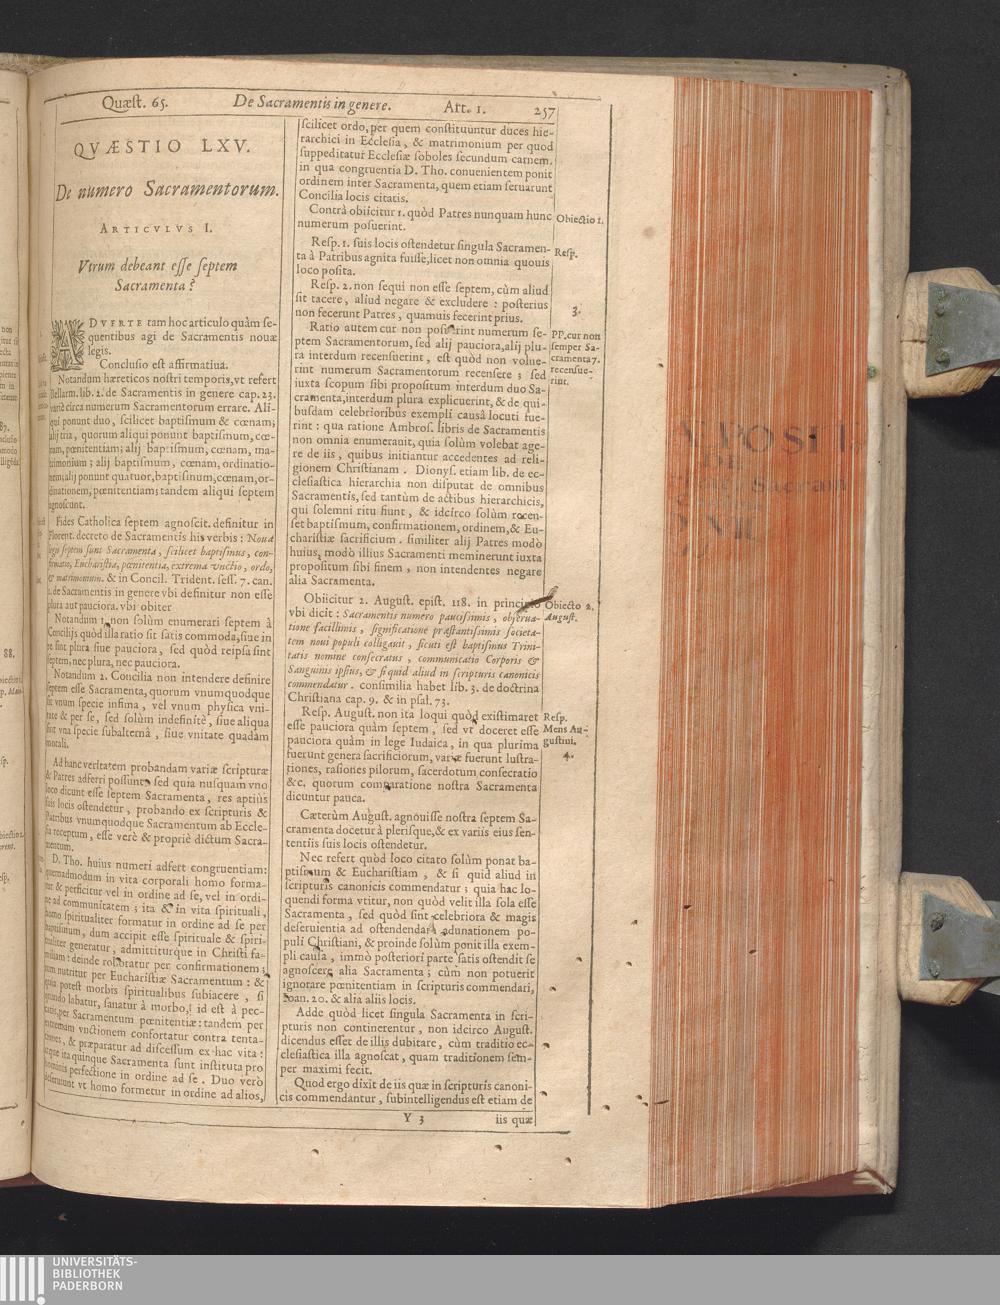 Quæst. 65. De Sacramentis in genere. Art. 1. 257
QVÆSTIO LXV.
De numero Sacramentorum.
ARTICVLVS I.
Vtrum debeant esse septem
Sacramenta?
ADVERTE tam hoc articulo quàm se-
quentibus agi de Sacramentis nouæ
legis.
Conclusio est affirmatiua.
Notandum hæreticos nostri temporis, vt refert
Bellarm. lib. 2. de Sacramentis in genere cap. 23.
variè circa numerum Sacramentorum errare. Ali-
qui ponunt duo, scilicet baptismum & cœnam;
alij tria, quorum aliqui ponunt baptismum, cœ-
nam, pœnitentiam; alij baptismum, cœnam, ma-
trimonium; alij baptismum, cœnam, ordinatio-
nem; alij ponunt quatuor, baptismum, cœnam, or-
dinationem, pœnitentiam; tandem aliqui septem
agnoscunt.
Fides Catholica septem agnoscit. definitur in
Florent. decreto de Sacramentis his verbis: Nouæ
legis septem sunt Sacramenta, scilicet baptismus, con-
firmatio, Eucharistia, pœnitentia, extrema vnctio, ordo,
& matrimonium. & in Concil. Trident. sess. 7. can.
1. de Sacramentis in genere vbi definitur non esse
plura aut pauciora. vbi obiter
Notandum 1. non solùm enumerari septem à
Concilijs quòd illa ratio sit satis commoda, siue in
re sint plura siue pauciora, sed quòd reipsa sint
septem, nec plura, nec pauciora.
Notandum 2. Concilia non intendere definire
septem esse Sacramenta, quorum vnumquodque
sit vnum specie infima, vel vnum physica vni-
tate & per se, sed solùm indefinitè, siue aliqua
sint vna specie subalternâ, siue vnitate quadam
morali.
Ad hanc veritatem probandam variæ scripturæ
& Patres adferri possunt, sed quia nusquam vno
loco dicunt esse septem Sacramenta, res aptiùs
suis locis ostendetur, probando ex scripturis &
Patribus vnumquodque Sacramentum ab Eccle-
sia receptum, esse verè & propriè dictum Sacra-
mentum.
D. Tho. huius numeri adfert congruentiam:
quemadmodum in vita corporali homo forma-
tur & perficitur vel in ordine ad se, vel in ordi-
ne ad communitatem; ita & in vita spirituali,
homo spiritualiter formatur in ordine ad se per
baptismum, dum accipit esse spirituale & spiri-
tualiter generatur, admittiturque in Christi fa-
miliam: deinde roboratur per confirmationem;
tum nutritur per Eucharistiæ Sacramentum: &
quia potest morbis spiritualibus subiacere, si
quando labatur, sanatur à morbo, id est à pec-
catis, per Sacramentum pœnitentiæ: tandem per
extremam vnctionem confortatur contra tenta-
tiones, & præparatur ad discessum ex hac vita:
atque ita quinque Sacramenta sunt instituta pro
hominis perfectione in ordine ad se. Duo verò
deseruiunt vt homo formetur in ordine ad alios,
scilicet ordo, per quem constituuntur duces hie-
rarchici in Ecclesia, & matrimonium per quod
suppeditatur Ecclesiæ soboles secundum carnem.
in qua congruentia D. Tho. conuenientem ponit
ordinem inter Sacramenta, quem etiam seruarunt
Concilia locis citatis.
Contrà obiicitur 1. quòd Patres nunquam hunc
numerum posuerint.
Obiectio 1.
Resp. 1. suis locis ostendetur singula Sacramen-
ta à Patribus agnita fuisse, licet non omnia quouis
loco posita.
Resp.
Resp. 2. non sequi non esse septem, cùm aliud
sit tacere, aliud negare & excludere: posterius
non fecerunt Patres, quamuis fecerint prius.
3.
Ratio autem cur non posuerint numerum se-
ptem Sacramentorum, sed alij pauciora, alij plu-
ra interdum recensuerint, est quòd non volue-
rint numerum Sacramentorum recensere; sed
iuxta scopum sibi propositum interdum duo Sa-
cramenta, interdum plura explicuerint, & de qui-
busdam celebrioribus exempli causâ locuti fue-
rint: qua ratione Ambros. libris de Sacramentis
non omnia enumerauit, quia solùm volebat age-
re de iis, quibus initiantur accedentes ad reli-
gionem Christianam. Dionys. etiam lib. de ec-
clesiastica hierarchia non disputat de omnibus
Sacramentis, sed tantùm de actibus hierarchicis,
qui solemni ritu fiunt, & idcirco solùm recen-
set baptismum, confirmationem, ordinem, & Eu-
charistiæ sacrificium. similiter alij Patres modò
huius, modò illius Sacramenti meminerunt iuxta
propositum sibi finem, non intendentes negare
alia Sacramenta.
PP. cur non
semper Sa-
cramenta 7.
recensue-
rint.
Obiicitur 2. August. epist. 118. in principio
vbi dicit: Sacramentis numero paucissimis, obserua-
tione facillimis, significatione præstantissimis societa-
tem noui populi colligauit, sicuti est baptismus Trini-
tatis nomine consecratus, communicatio Corporis &
Sanguinis ipsius, & si quid aliud in scripturis canonicis
commendatur. consimilia habet lib. 3. de doctrina
Christiana cap. 9. & in psal. 73.
Obiecto 2.
August.
Resp. August. non ita loqui quòd existimaret
esse pauciora quàm septem, sed vt doceret esse
pauciora quàm in lege Iudaica, in qua plurima
fuerunt genera sacrificiorum, variæ fuerunt lustra-
tiones, rasiones pilorum, sacerdotum consecratio
&c. quorum comparatione nostra Sacramenta
dicuntur pauca.
Resp.
Mens Au-
gustini.
4.
Cæterùm August. agnouisse nostra septem Sa-
cramenta docetur à plerisque, & ex variis eius sen-
tentiis suis locis ostendetur.
Nec refert quòd loco citato solùm ponat ba-
ptismum & Euchariſtiam, & si quid aliud in
scripturis canonicis commendatur; quia hac lo-
quendi forma vtitur, non quòd velit illa sola esse
Sacramenta, sed quòd sint celebriora & magis
deseruientia ad ostendendam adunationem po-
puli Christiani, & proinde solùm ponit illa exem-
pli causa, immò posteriori parte satis ostendit se
agnoscere alia Sacramenta; cùm non potuerit
ignorare pœnitentiam in scripturis commendari,
Ioan. 20. & alia aliis locis.
Adde quòd licet singula Sacramenta in scri-
pturis non continerentur, non idcirco August.
dicendus esset de illis dubitare, cùm traditio ec-
clesiastica illa agnoscat, quam traditionem sem-
per maximi fecit.
Quod ergo dixit de iis quæ in scripturis canoni-
cis commendantur, subintelligendus est etiam de
Y 3 iis quæ
UNIVERSITÄTS-
BIBLIOTHEK
PADERBORN